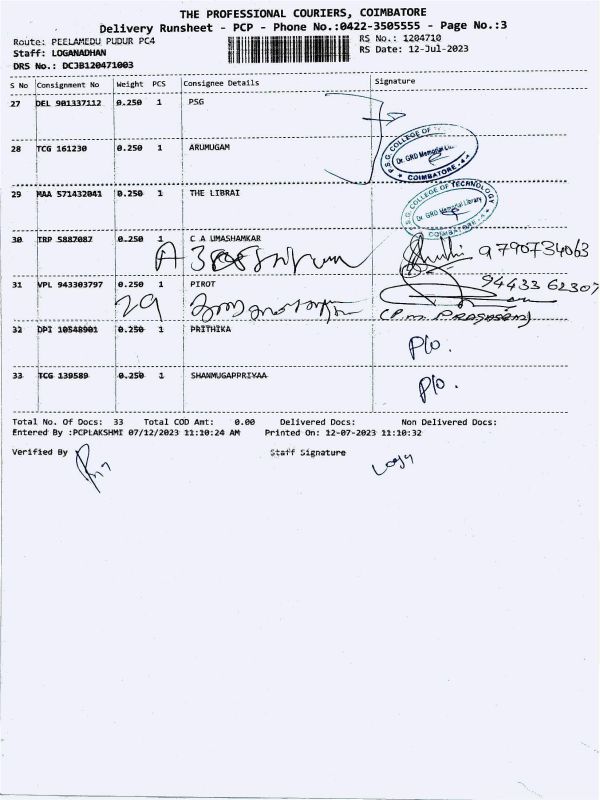 THE PROFESSIONAL COURIERS, COIMBATORE
Delivery Runsheet - PCP - Phone No.:0422-3505555 - Page No.:3
Route: PEELAMEDU PUDUR PC4 RS No.: 1204710
Staff: LOGANADHAN RS Date: 12-Jul-2023
DRS No.: DCJB120471003
S No Consignment No Weight PCS Consignee Details Signature
27 DEL 901337112 0.250 1 PSG
28 TCG 161230 0.250 1 ARUMUGAM
P.S.G. COLLEGE OF
Dr. GRD Memorial
COIMBATORE
29 MAA 571432041 0.250 1 THE LIBRAI
P.S.G. COLLEGE OF TECHNOLOGY
Dr. GRD Memorial Library
COIMBATORE
30 TRP 5887087 0.250 1 C A UMASHAMKAR
9790734063
31 VPL 943303797 0.250 1 PIROT
29
9443362307
32 DPI 10548901 0.250 1 PRITHIKA
P/o.
33 TCG 139589 0.250 1 SHANMUGAPPRIYAA
P/o.
Total No. Of Docs: 33 Total COD Amt: 0.00 Delivered Docs: Non Delivered Docs:
Entered By :PCPLAKSHMI 07/12/2023 11:10:24 AM Printed On: 12-07-2023 11:10:32
Verified By Staff Signature